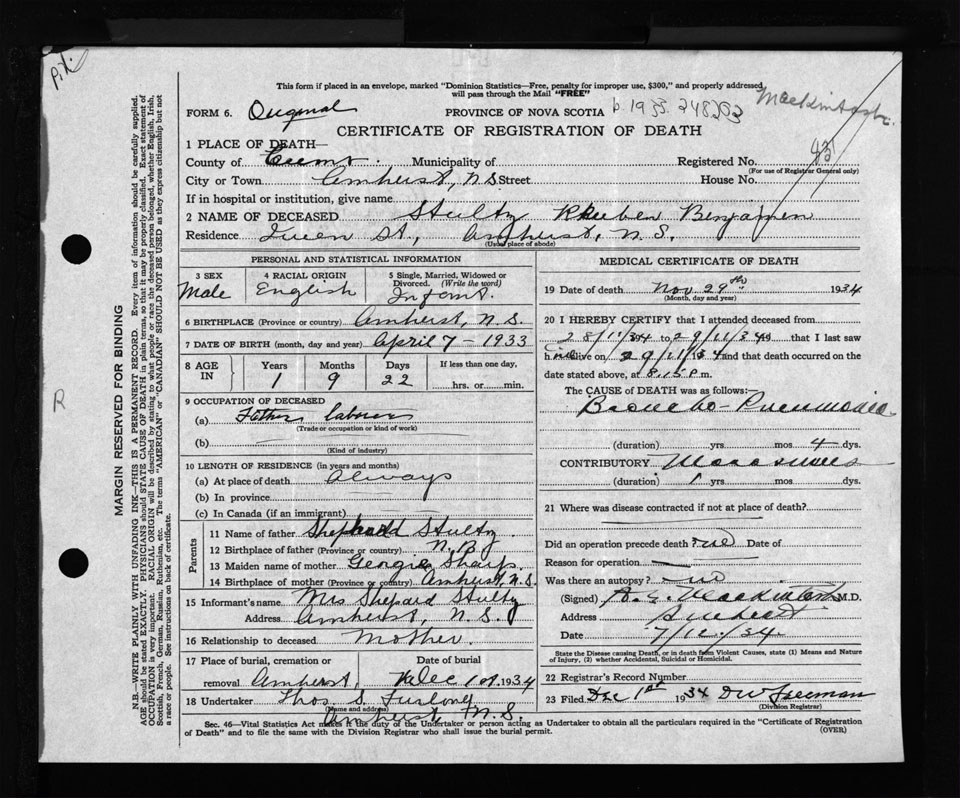 This form if placed in an envelope, marked "Dominion Statistics—Free, penalty for improper use, $300," and properly addressed,
will pass through the Mail "FREE"
FORM 6. Original PROVINCE OF NOVA SCOTIA b. 1933. 248203 Mackintosh
CERTIFICATE OF REGISTRATION OF DEATH
1 PLACE OF DEATH—
County of Cumb. Municipality of Registered No.
(For use of Registrar General only)
City or Town Amherst, N.S Street House No.
If in hospital or institution, give name
2 NAME OF DECEASED Stultz Rheuben Benjamin
Residence St., Amherst, N.S.
(Usual place of abode)
PERSONAL AND STATISTICAL INFORMATION
3 SEX 4 RACIAL ORIGIN 5 Single, Married, Widowed or
Divorced. (Write the word)
Male English Infant.
6 BIRTHPLACE (Province or country) Amherst, N.S.
7 DATE OF BIRTH (month, day and year) April 7 - 1933
8 AGE IN Years Months Days If less than one day,
1 9 22 hrs. or min.
9 OCCUPATION OF DECEASED
(a) Father labourer
(Trade or occupation or kind of work)
(b)
(Kind of industry)
10 LENGTH OF RESIDENCE (in years and months)
(a) At place of death Always
(b) In province
(c) In Canada (if an immigrant)
Parents
11 Name of father Stultz
12 Birthplace of father (Province or country) N.B
13 Maiden name of mother Georgie Sharp
14 Birthplace of mother (Province or country) Amherst, N.S.
15 Informant's name Mrs Shepard Stultz
Address Amherst, N.S.
16 Relationship to deceased Mother.
17 Place of burial, cremation or Date of burial
removal Amherst, Dec 1st 1934
18 Undertaker Thos S. Furlong
(Name and address)
Amherst N.S.
MEDICAL CERTIFICATE OF DEATH
19 Date of death Nov 29th 1934
(Month, day and year)
20 I HEREBY CERTIFY that I attended deceased from
28/11/34 to 29/11/34 19 that I last saw
h alive on 29/11/34 and that death occurred on the
date stated above, at 8.15 P. m.
The CAUSE OF DEATH was as follows:
Broncho-Pneumonia
(duration) yrs. mos. 4 dys.
CONTRIBUTORY
(duration) 1 yrs. mos. dys.
21 Where was disease contracted if not at place of death?
Did an operation precede death? no Date of
Reason for operation
Was there an autopsy? no
(Signed) Mackintosh M.D.
Address Amherst
Date
State the Disease causing Death, or in death from Violent Causes, state (1) Means and Nature
of Injury, (2) whether Accidental, Suicidal or Homicidal.
22 Registrar's Record Number
23 Filed Dec 1st 1934 DW Freeman
(Division Registrar)
Sec. 46—Vital Statistics Act makes it the duty of the Undertaker or person acting as Undertaker to obtain all the particulars required in the "Certificate of Registration
of Death" and to file the same with the Division Registrar who shall issue the burial permit. (OVER)
MARGIN RESERVED FOR BINDING
N.B.—WRITE PLAINLY WITH UNFADING INK—THIS IS A PERMANENT RECORD. Every item of information should be carefully supplied.
AGE should be stated EXACTLY. PHYSICIANS should STATE CAUSE OF DEATH in plain terms, so that it may be properly classified. Exact statement of
OCCUPATION is very important. RACIAL ORIGIN will be described by stating to what people or race the deceased person belonged, whether English, Irish,
Scottish, French, German, Russian, Ruthenian, etc. The terms "AMERICAN" or "CANADIAN" SHOULD NOT BE USED as they express citizenship but not
a race or people. See instructions on back of certificate.
R